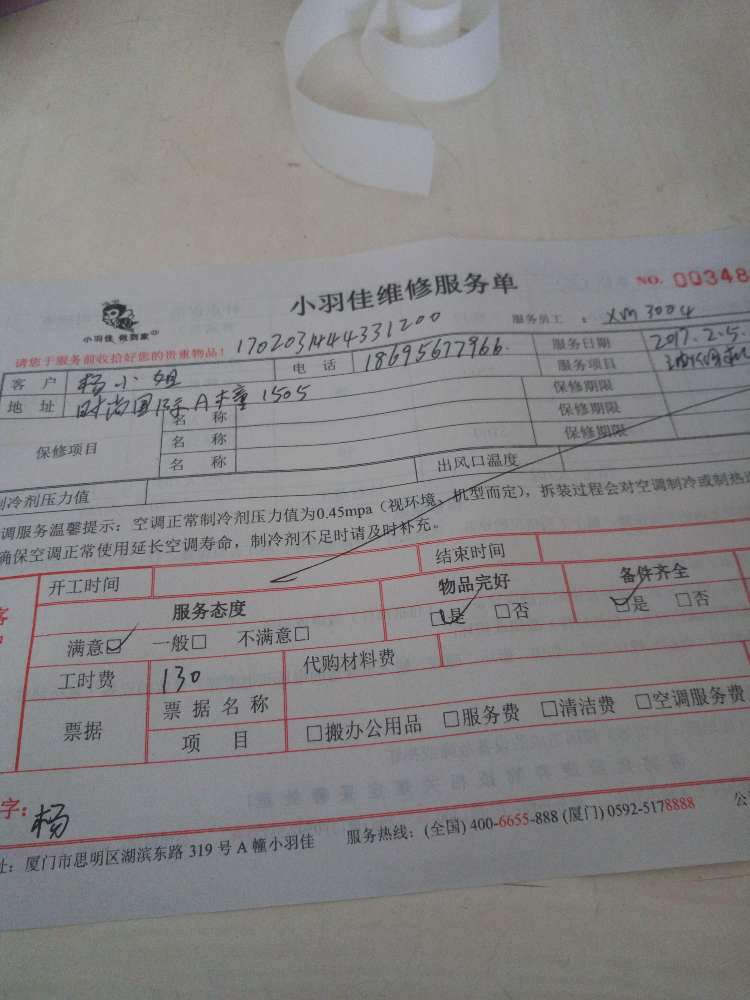 小羽佳维修服务单
NO. 00348
小羽佳 做到家
请您于服务前收拾好您的贵重物品!
服务员工 : XM3004
客 户 杨小姐 电 话 18695677966. 服务日期 2017.2.5
地 址 时尚国际A幢1505 服务项目
保修项目
名 称 保修期限
名 称 保修期限
名 称 保修期限
制冷剂压力值 出风口温度
调服务温馨提示：空调正常制冷剂压力值为0.45mpa（视环境、机型而定），拆装过程会对空调制冷或制热造
确保空调正常使用延长空调寿命，制冷剂不足时请及时补充。
开工时间 结束时间
服务态度 物品完好 备件齐全
满意☑ 一般□ 不满意□ ☑是 □否 ☑是 □否
工时费 130 代购材料费
票据 票 据 名 称
项 目 □搬办公用品 □服务费 □清洁费 □空调服务费
字：杨
址：厦门市思明区湖滨东路 319 号 A 幢小羽佳 服务热线：(全国) 400-6655-888 (厦门) 0592-5178888